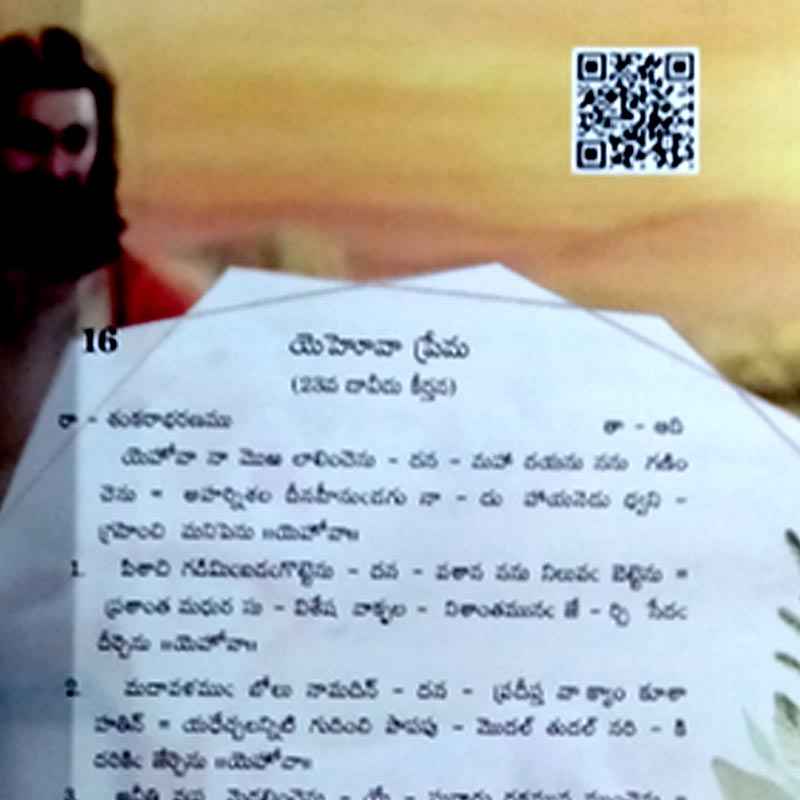 16
యెహెూవా ప్రేమ
(23వ దావీదు కీర్తన)
రా - శంకరాభరణము
తా - ఆది
యెహోవా నా మొఱ లాలించెను - దన - మహా దయను నను గణిం
చెను = అహర్నిశల దీనహీనుఁడగు నా - దు హాయనెడు ధ్వని -
గ్రహించి మనిపెను ॥యెహోవా॥
1. పిశాచి గడిమిఁబడఁగొట్టెను - దన - వశాన నను నిలువఁ బెట్టెను =
ప్రశాంత మధుర సు - విశేష వాక్కుల - నిశాంతమునఁ జే - ర్చి సేదఁ
దీర్చెను ॥యెహోవా॥
2. మదావళముఁ బోలు నామదిన్ - దన - ప్రదీప్త వా క్యాం కూశా
హతిన్ = యథేచ్ఛలన్నిటి గుదించి పాపపు - మొదల్ తుదల్ నరి - కి
దరికిఁ జేర్చెను ॥యెహోవా॥
3.